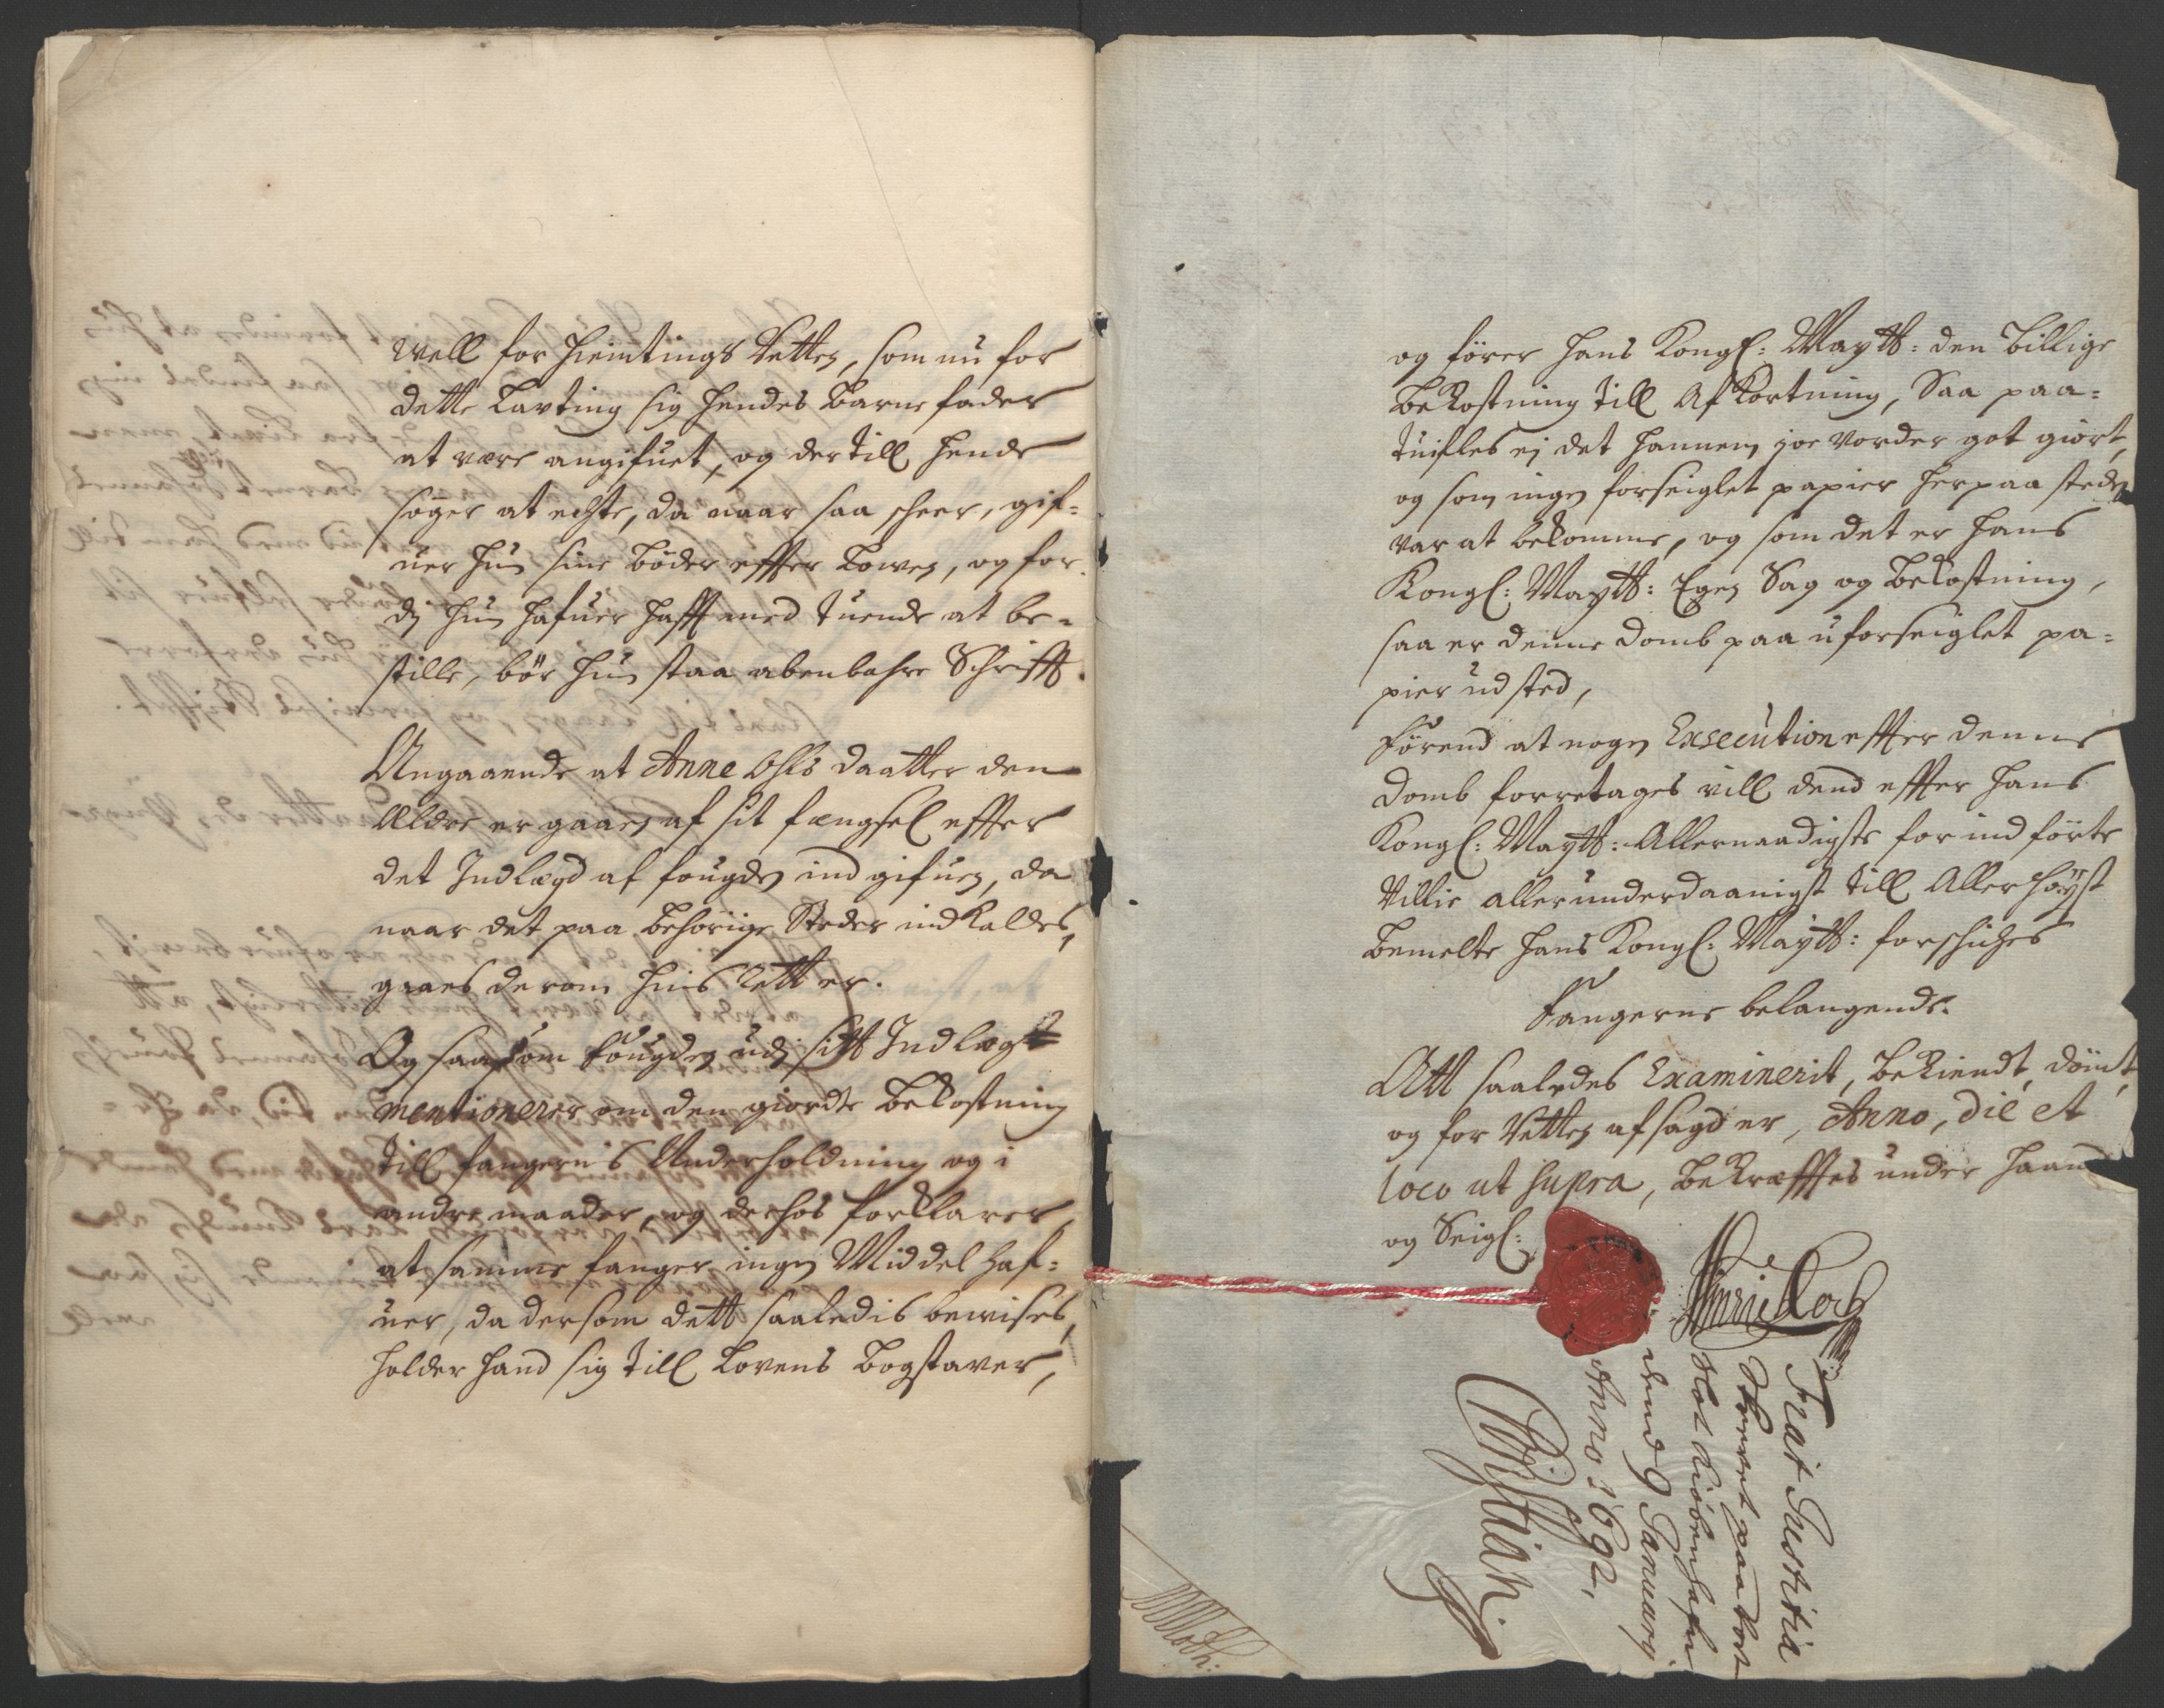 well for hiemtings Retten, som nu for
dette Lavting sig hendes Barne fader
at være angifuet, og dertill hende
søger at echte, da naar saa scheer, gif=
uer hun sine bøder effter Lowen, og for
dj hun hafuer hafft med tuende at be=
stille, bör hun staa abenbahre Schrifft.
Angaaende at Anne Olsdaatter den
Ældre er gaaen af sit fængsel effter
det Indlægd af fougden ind gifuen, da
naar det paa behörige Steder indkaldes,
gaaes derom huis Rett er.
Og saasom fougden udj sitt Indlægt
mentionerer om den giordte bekostning
till fangernis Underholdning og i
andre maader, og derhos forklarer,
at samme fanger ingen Middel haf=
uer, da dersom dett saaledis bewises,
holder hand sig till Lovens bogstaver,
og förer hans Kongl: Maytt: den billige
bekostning till Afkortning, Saa paa=
tuifles ej det hannem joe vorder got giort,
og som ingen forseiglet papier herpaa steden
var at bekomme, og som det er hans
Kongl: Maytt: Egen Sag og bekostning,
saa er denne domb paa uforseiglet pa=
pier udsted,
förend at nogen Exsecution effter denne
domb forretages vill dend effter hans
Kongl: Maytt: Allernaadigste for indförte
Villie allerunderdaanigst till Allerhöyst
bemelte hans Kongl: Maytt: forschiches
fangerne belangende.
Att saaledes Examinerit, bekiendt, dömt,
og for Retten afsagd er, Anno, die et
loco ut supra, bekræfftes under haand
og Seigl:
Fiat Justitia
Skrevet paa Vort
Slot Kiöbenhafn
dend 9 Januarij
Anno 1692,
Christian
Moth: